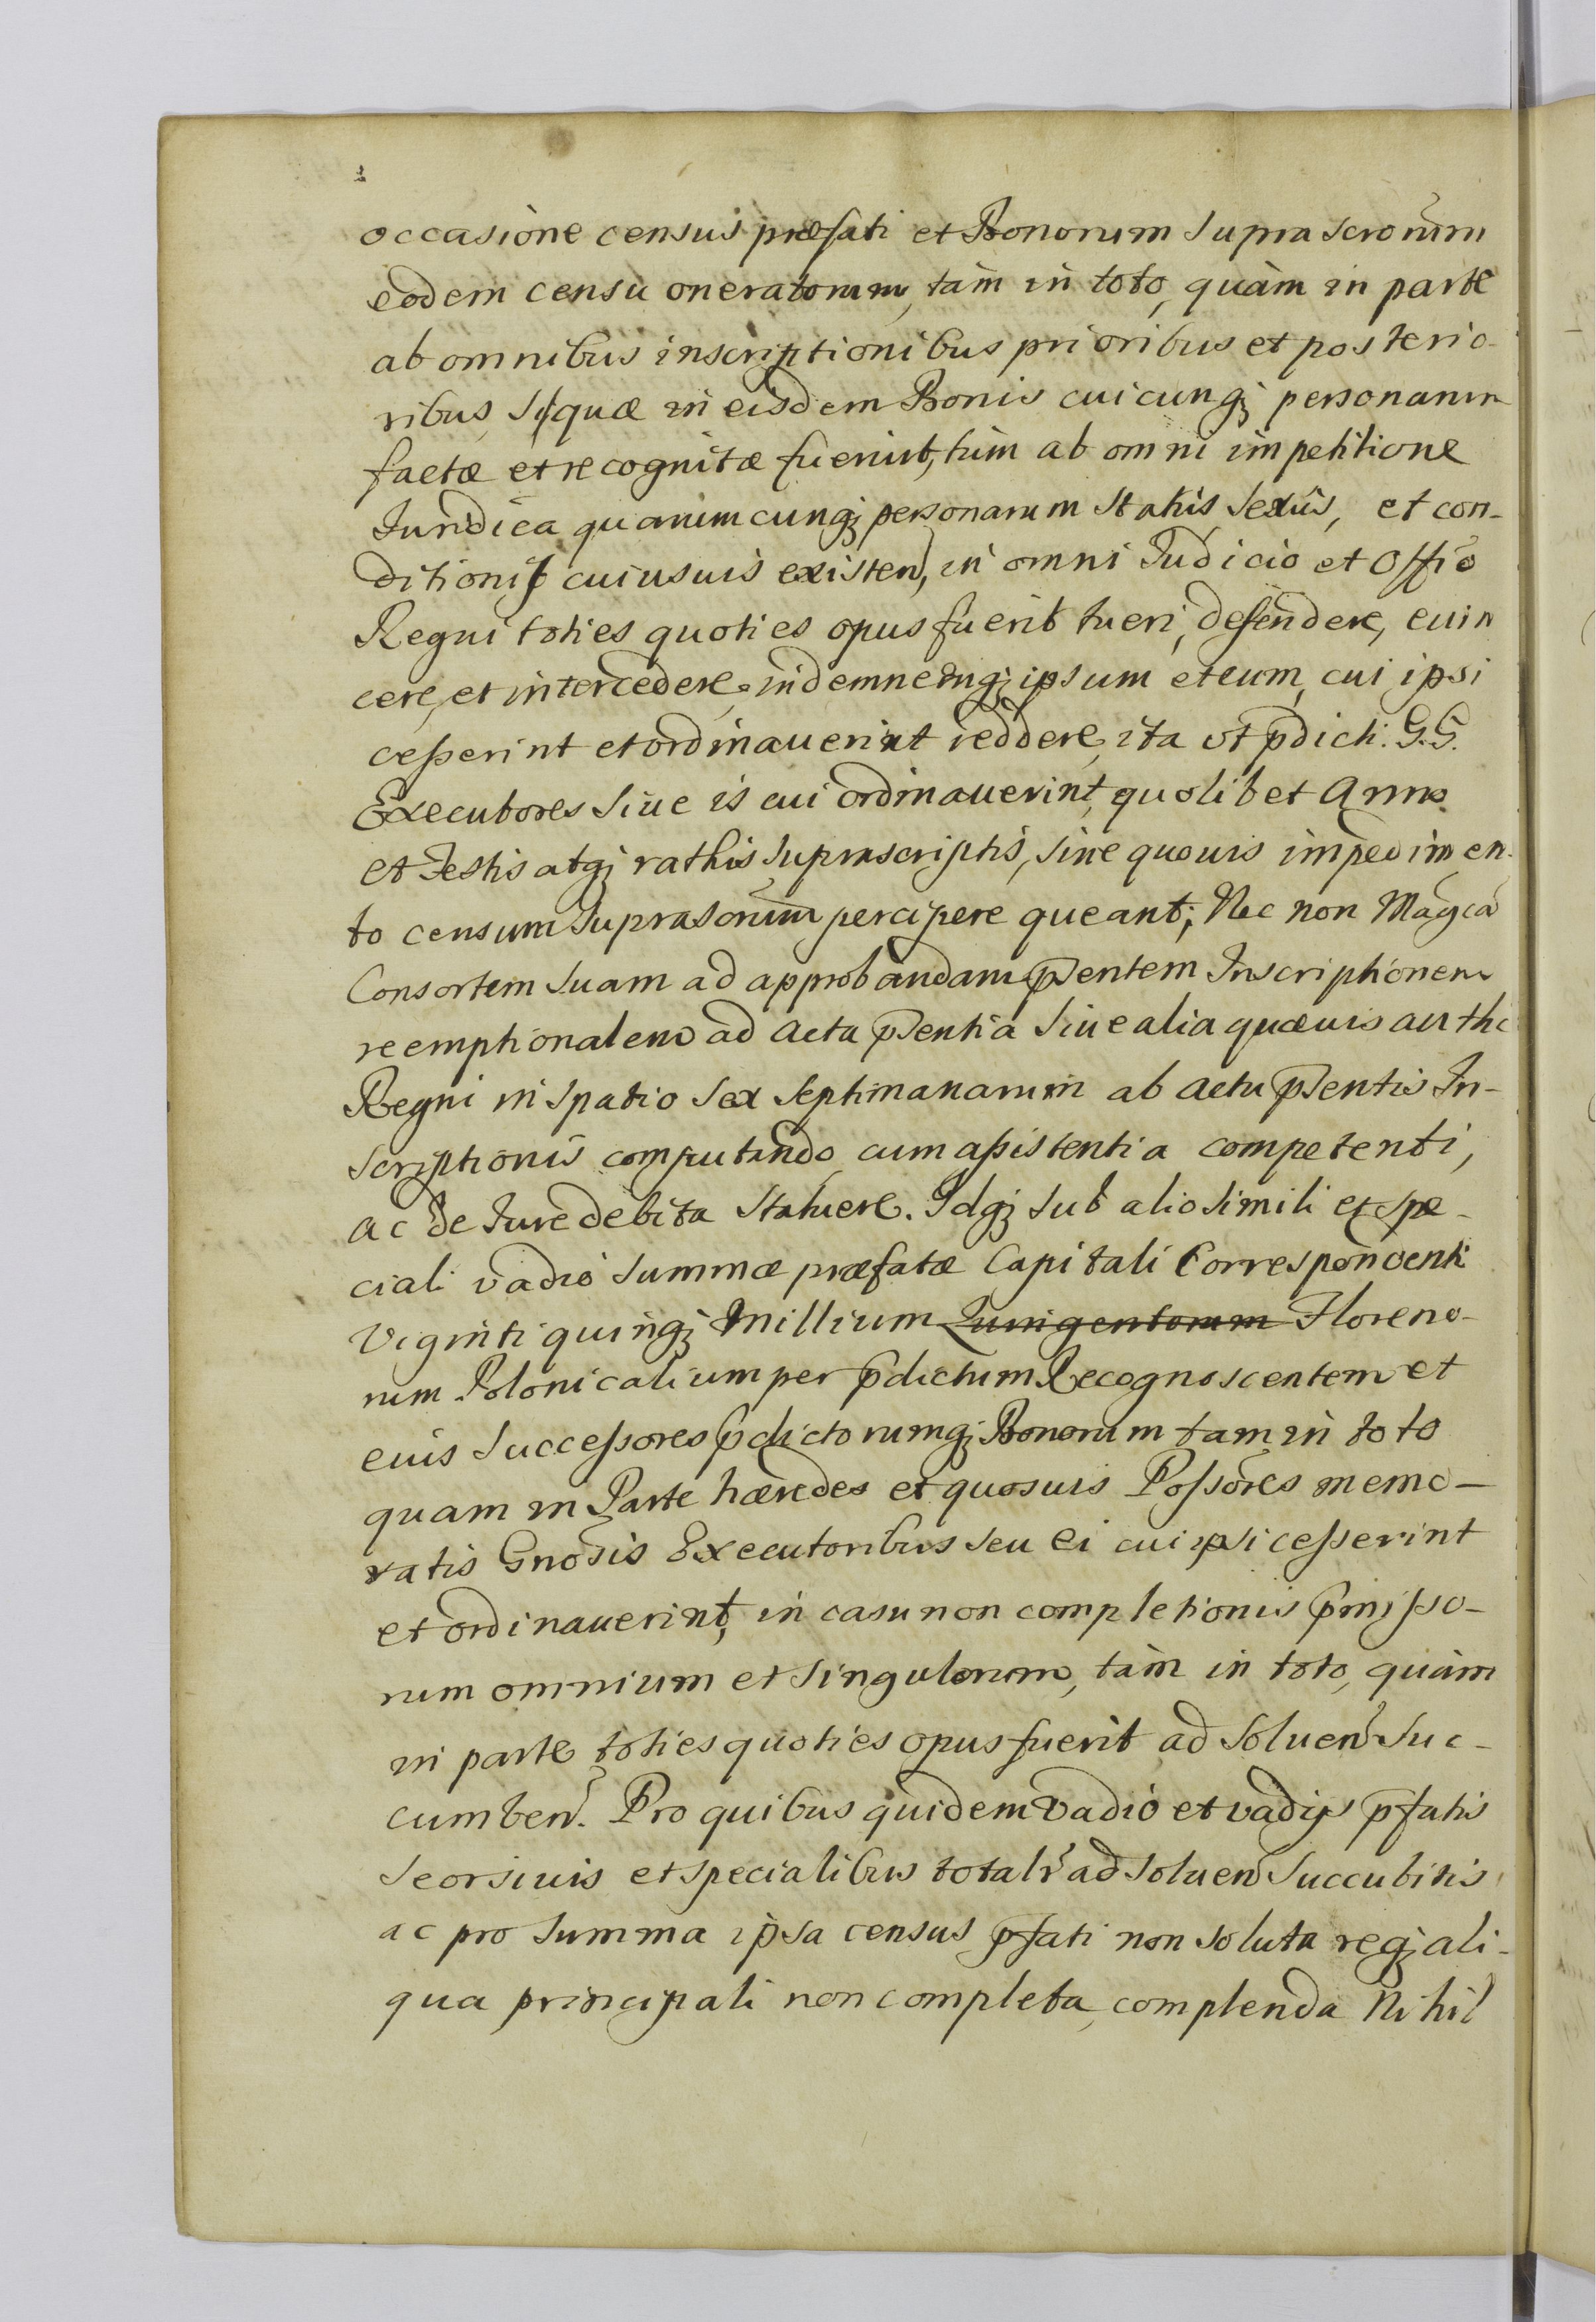 occasione census præfati et Bonorum suprascrorum
eodem censu oneratorum, tàm in toto, quàm in parte
ab omnibus inscriptionibus prioribus et posterio-
ribus, siquæ in eisdem Bonis cuicunq; personarum
factæ et recognitæ fuerint, tùm ab omni impetitione
Juridica quarumcunq; personarum status, sexûs, et con-
ditionis cuiusuis existen, in omni Judicio et Offio
Regni toties quoties opus fuerit tueri, defendere, euin
cere, et intercedere, indemnemq; ipsum et eum, cui ipsi
cesserint et ordinauerint reddere, ita vt pdicti G.G.
Executores siue is cui ordinauerint, quolibet Anno
et Festis atq; rathis suprascriptis, sine quouis impedimen-
to censum suprascrium percipere queant; Nec non Magcã
Consortem suam ad approbandam psentem Inscriptionem
reemptionalem ad Acta psentia siue alia quæuis authẽ
Regni in spatio sex septimanarum ab actu psentis In-
scriptionis computando, cum assistentia competenti,
ac de Jure debita statuere. Idq; sub alio simili et spe-
ciali vadio summæ præfatæ Capitali Correspondenti
Viginti quinq; Millium Quingentorum Floreno-
rum Polonicalium per pdictum Recognoscentem et
eius successores pdictorumq; Bonorum tam in toto
quam in Parte hæredes et quosuis Possores memo-
ratis Gnosis Executoribus seu ei cui ipsi cesserint
et ordinauerint, in casu non completionis pmisso-
rum omnium et singulorum, tàm in toto, quàm
in parte toties quoties opus fuerit ad soluen suc-
cumben. Pro quibus quidem Vadio et vadijs pfatis
seorsiuis et specialibus totalr ad soluen succubitis
ac pro summa ipsa census pfati non soluta req; ali-
qua principali non completa, complenda Nihil